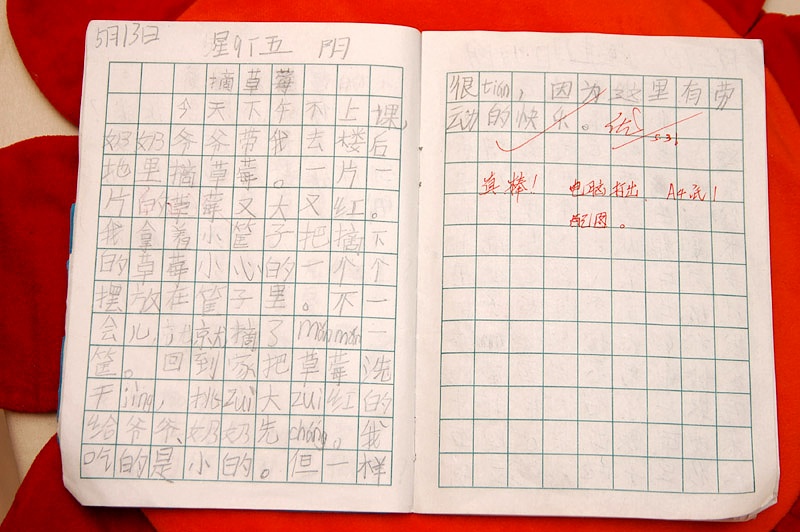 5月13日 星期五 阴
摘草莓
今天下午不上课,
奶奶爷爷带我去楼后
地里摘草莓。一片一
片的草莓又大又红。
我拿着小筐子把摘下
的草莓小心的一个个
摆放在筐子里。不一
会儿,就摘了mǎnmǎn一
筐。回到家把草莓洗
干jing,挑zuì大zuì红的
给爷爷、奶奶先cháng。我
吃的是小的。但一样
很tián,因为这里有劳
动的快乐。优
5.31
真棒! 电脑打出 A4纸!
配图。